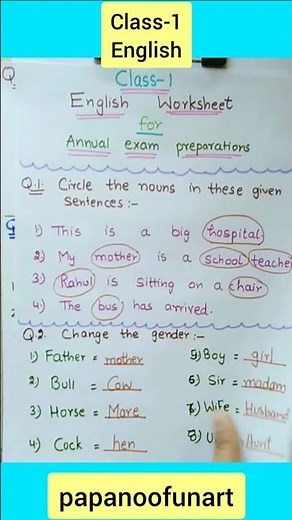 Class-1
English
Q
Class-1
English Worksheet
for
Annual exam preparations
Q.1. Circle the nouns in these given
Sentences:-
1) This is a big hospital.
2) My mother is a school teacher
3) Rahul is sitting on a chair
4) The bus has arrived.
Q.2. Change the gender:-
1) Father = mother
2) Bull = Cow
3) Horse = Mare
4) Cock = hen
5) Boy = girl
6) Sir = madam
7) Wife = Husband
8) = Aunt
papanoofunart